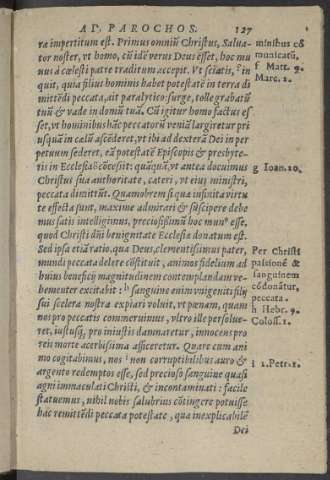 AD PAROCHOS. 127
ra impertitum est. Primus omniũ Christus, Salua-
tor noster, vt homo, cũ idẽ verus Deus esset, hoc mu
nus à cœlesti patre traditum accepit. Vt sciatis, f in
quit, quia filius hominis habet potestatẽ in terra di
mittẽdi peccata, ait paralytico: surge, tolle grabatũ
tuũ & vade in domũ tuã. Cũ igitur homo factus es
set, vt hominibus hãc peccatorũ veniã largiretur pri
usquã in cælũ ascẽderet, vt ibi ad dexterã Dei in per
petuum sederet, eã potestatẽ Episcopis & presbyte-
ris in Ecclesia cõcessit: quãquã, vt antea docuimus
Christus sua authoritate, cæteri, vt eius ministri,
peccata dimittũt. Quamobrem si qua infinita virtu
te effecta sunt, maxime admirari & suscipere debe
mus satis intelligimus, preciosissimũ hoc munꝰ esse,
quod Christi dñi benignitate Ecclesiæ donatum est.
Sed ipsa etiã ratio, qua Deus, clementissimus pater,
mundi peccata delere cõstituit, animos fidelium ad
huius beneficij magnitudinem contemplandam ve-
hementer excitat: h sanguine enim vnigeniti filij
sui scelera nostra expiari voluit, vt pœnam, quam
nos pro peccatis commeruimus, vltro ille persolue-
ret, iustusq́; pro iniustis damnaretur, innocens pro
reis morte acerbissima afficeretur. Quare cum ani
mo cogitabimus, nos i non corruptibilibus auro &
argento redemptos esse, sed precioso sanguine quasi
agni immaculati Christi, & incontaminati: facile
statuemus, nihil nobis salubrius cõtingere potuisse
hac remittẽdi peccata potestate, qua inexplicabilẽ
Dei
ministus cõ
municatũ,
f Matt. 9.
Marc. 2.
g Ioan. 20.
Per Christi
passionẽ &
sanguinem
cõdonãtur,
peccata.
h Hebr. 9.
Coloss. 1.
i 1. Petr. 1.